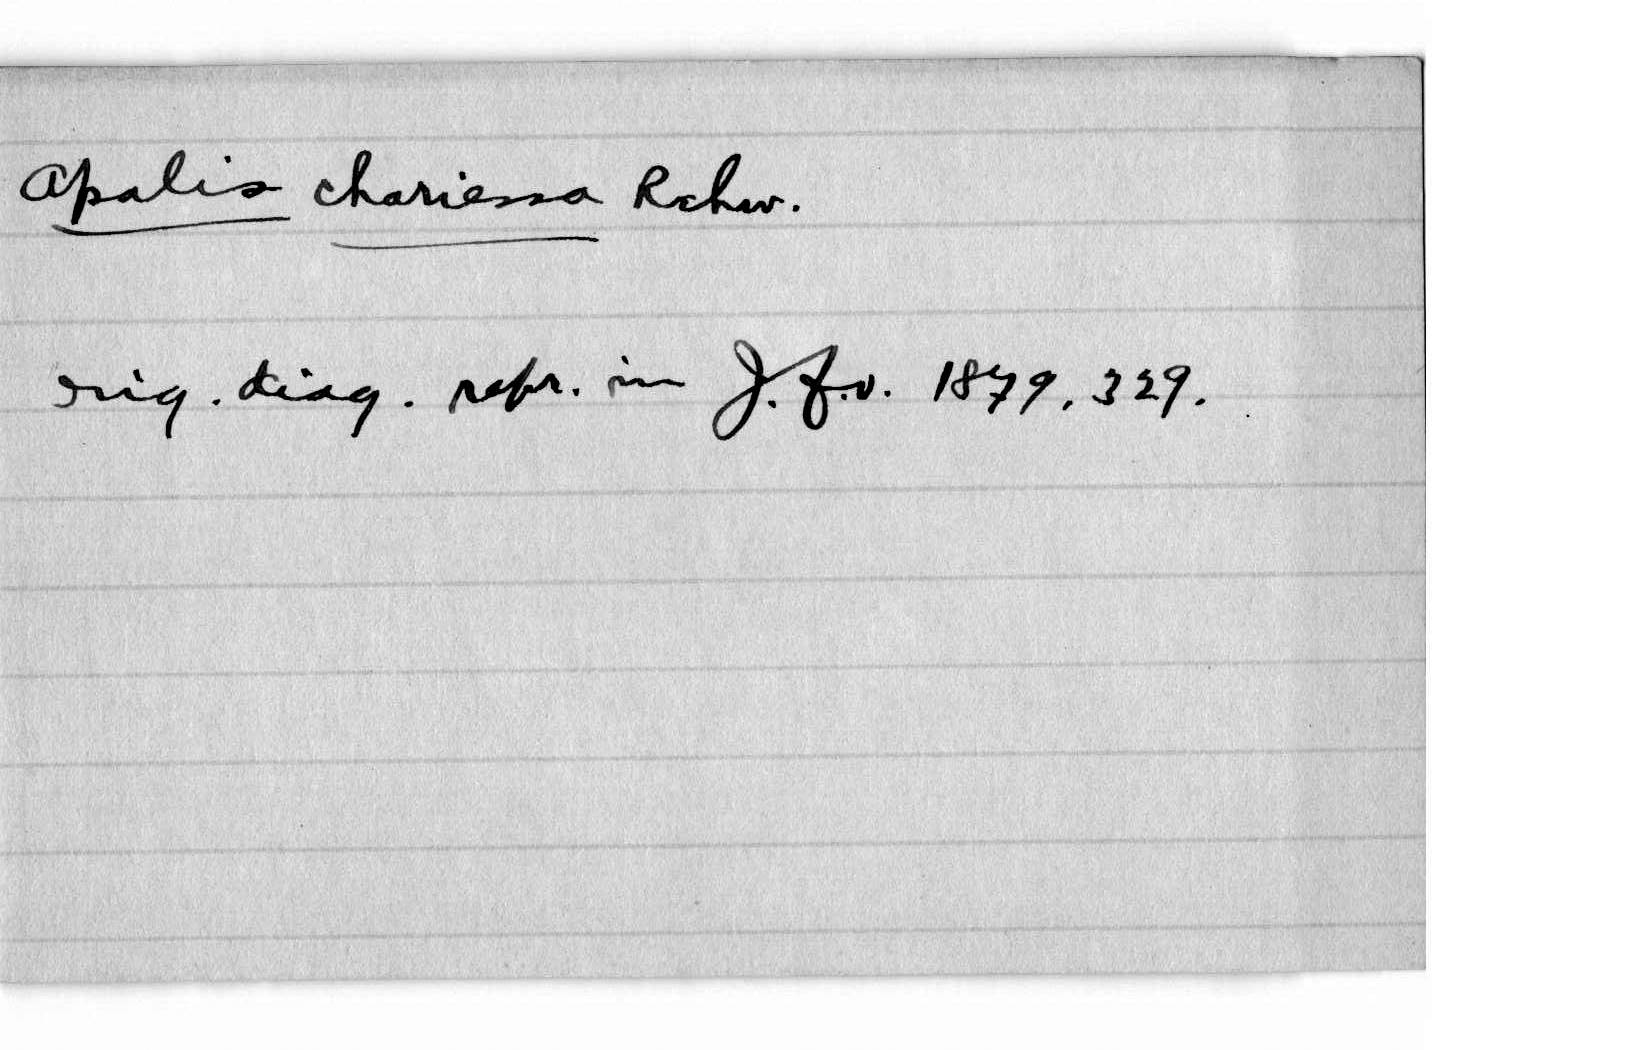 Apalis chariessa Rchw.
orig. diag. repr. in J.f.o. 1879, 329.